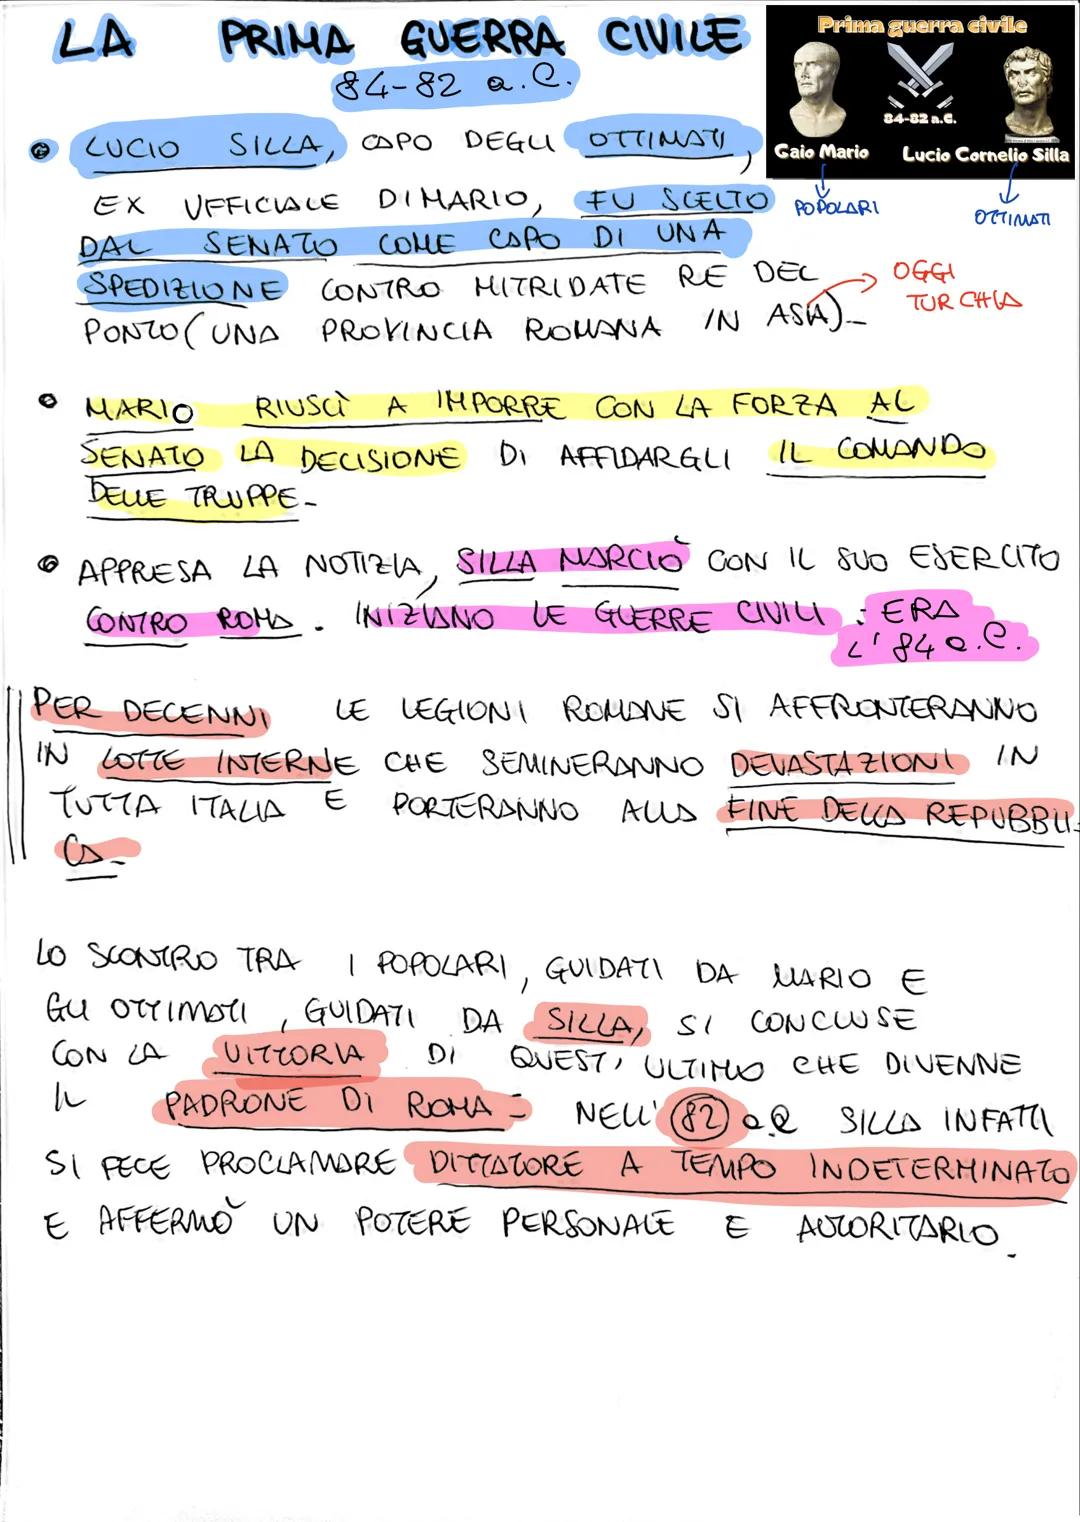 LA PRIMA GUERRA CIVILE
84-82 a.C.
Prima guerra civile
84-82 a.C.
Gaio Mario Lucio Cornelio Silla
POPOLARI
OTTIMATI
LUCIO SILLA, CAPO DEGLI OTTIMATI,
EX UFFICIALE DI MARIO, FU SCELTO
DAL SENATO COME CAPO DI UNA
SPEDIZIONE CONTRO MITRIDATE RE DEL
PONTO (UNA PROVINCIA ROMANA IN ASIA)-
OGGI
TURCHIA
MARIO RIUSCÌ A IMPORRE CON LA FORZA AL
SENATO LA DECISIONE DI AFFIDARGLI IL COMANDO
DELLE TRUPPE-
APPRESA LA NOTIZIA, SILLA MARCIÒ CON IL SUO ESERCITO
CONTRO ROMA. INIZIANO LE GUERRE CIVILI: ERA
L'84 a.C.
PER DECENNI LE LEGIONI ROMANE SI AFFRONTERANNO
IN LOTTE INTERNE CHE SEMINERANNO DEVASTAZIONI IN
TUTTA ITALIA E PORTERANNO ALLA FINE DELLA REPUBBLI-
CA-
LO SCONTRO TRA I POPOLARI, GUIDATI DA MARIO E
GLI OTTIMATI, GUIDATI DA SILLA, SI CONCLUSE
CON LA VITTORIA DI QUEST'ULTIMO CHE DIVENNE
IL PADRONE DI ROMA- NELL'82 a.C SILLA INFATTI
SI FECE PROCLAMARE DITTATORE A TEMPO INDETERMINATO
E AFFERMÒ UN POTERE PERSONALE E AUTORITARIO.